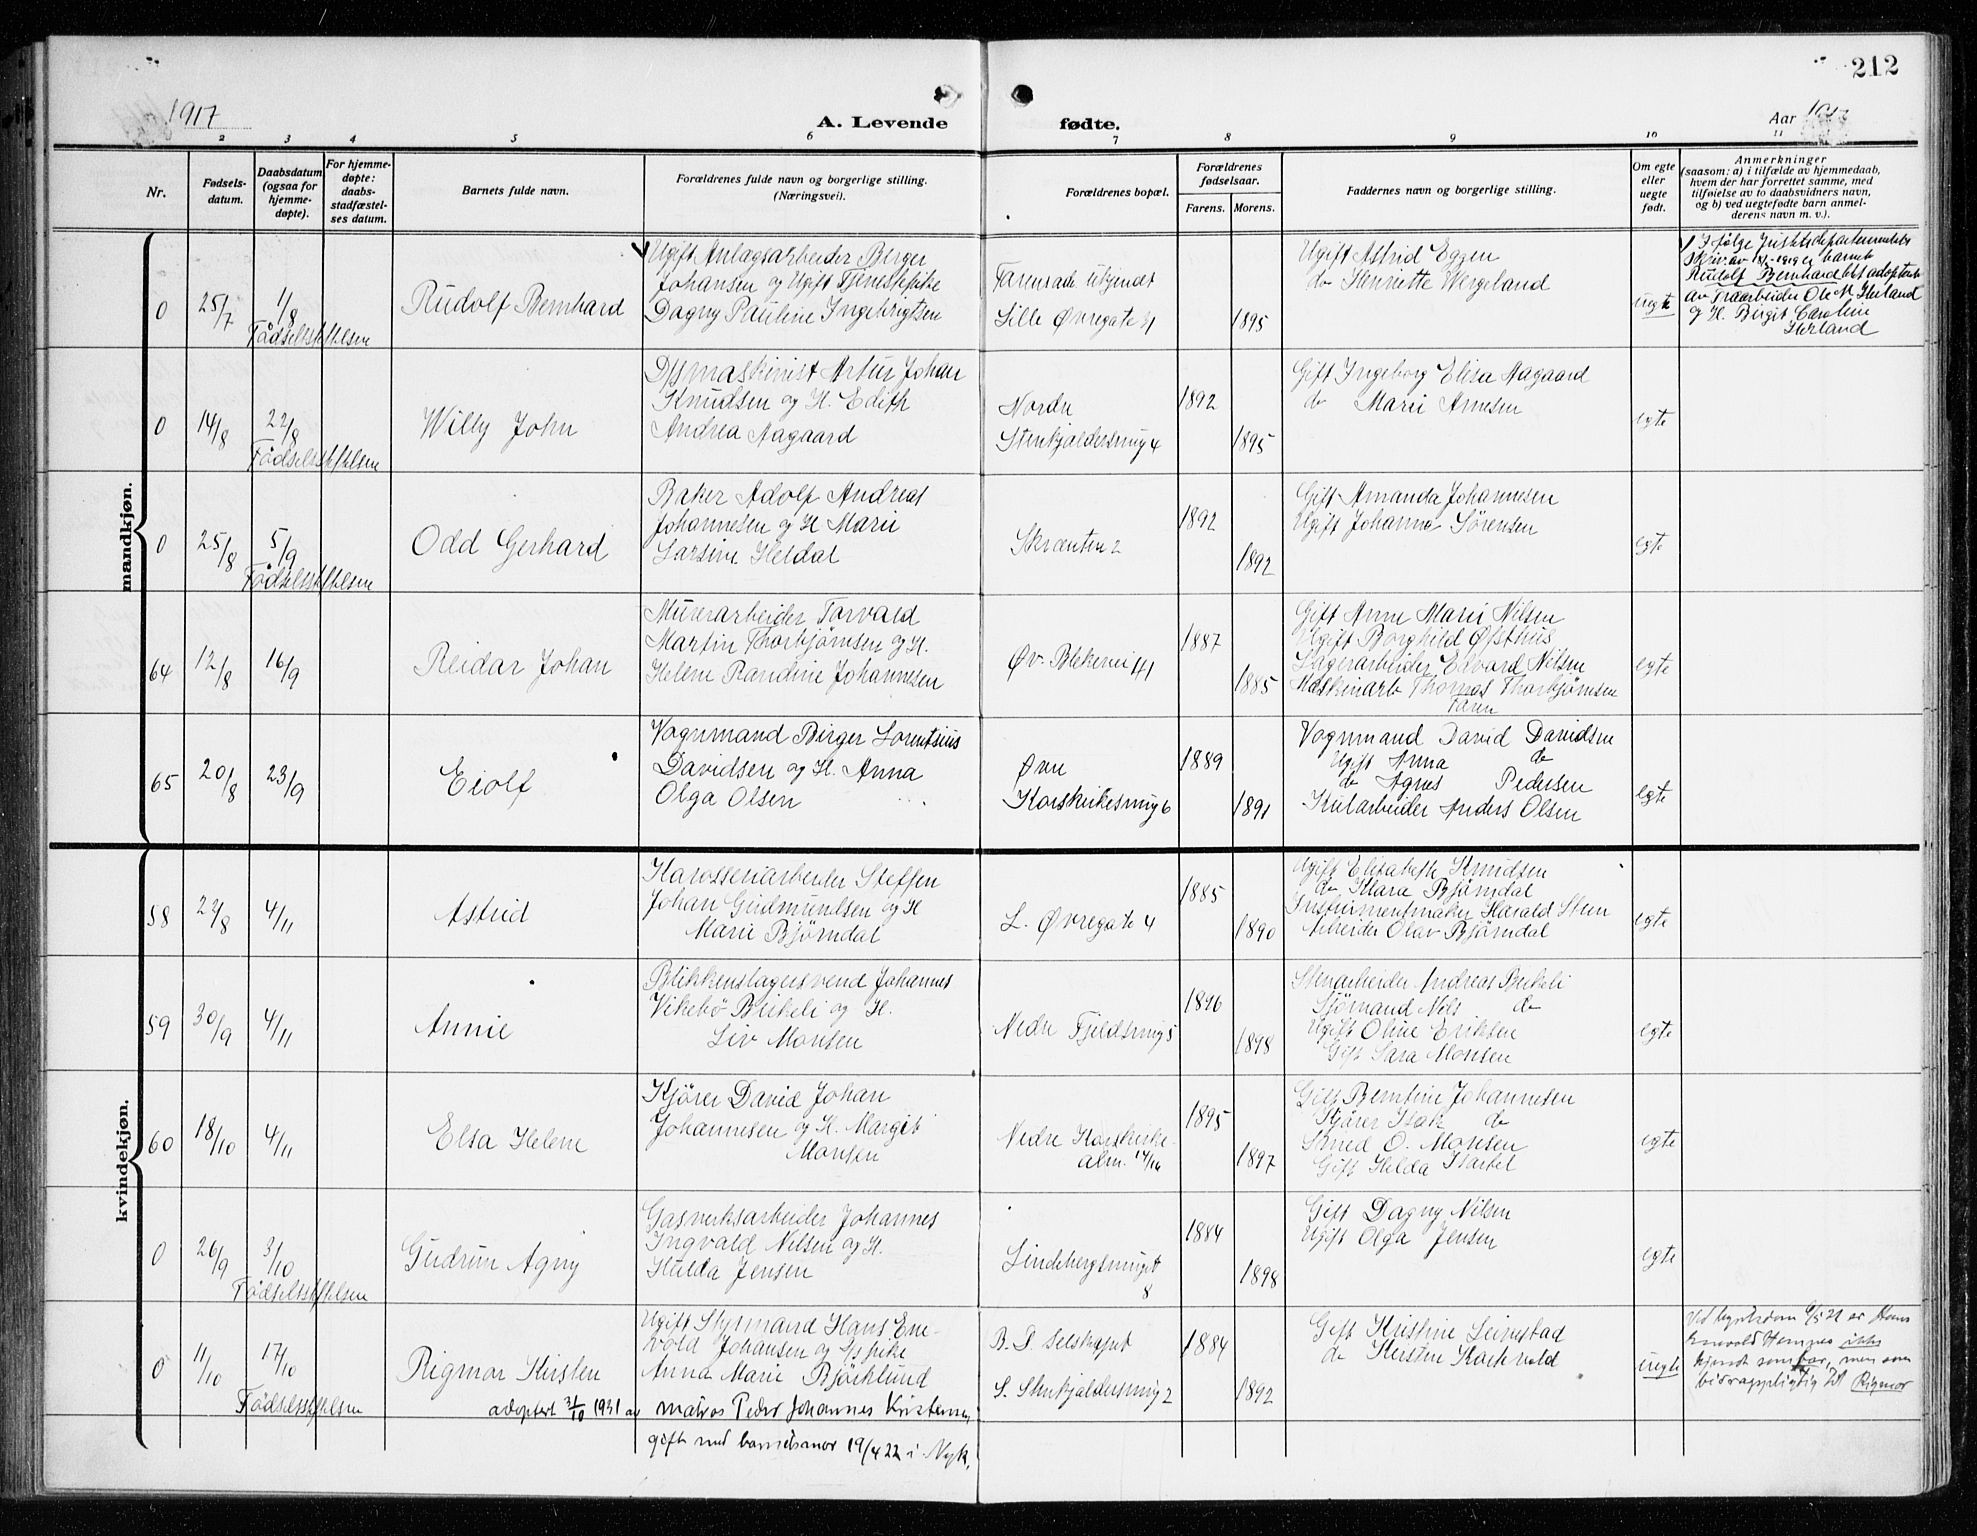 212
1917
A. Levende fødte.
Aar 1917
2 3 4 5 6 7 8 9 10 11
Nr.
Fødsels-
datum.
Daabsdatum
(ogsaa for
hjemme-
døpte).
For hjemme-
døpte:
daabs-
stadfæstel-
ses datum.
Barnets fulde navn.
Forældrenes fulde navn og borgerlige stilling.
(Næringsvei).
Forældrenes bopæl.
Forældrenes
fødselsaar.
Farens. Morens.
Faddernes navn og borgerlige stilling.
Om egte
eller
uegte
født.
Anmerkninger
(saasom: a) i tilfælde av hjemmedaab,
hvem der har forrettet samme, med
tilføielse av to daabsvidners navn,
og b) ved uegtefødte barn anmel-
derens navn m. v.).
mandkjøn.
0
25/7
1/8
Fødselsstiftelsen
Rudolf Bernhard
Ugift Anlagsarbeider Birger
Johansen og Ugift Tjenestepike
Dagny Pauline Ingebrigtsen
Farens adr ukjendt
Lille Øvregate 31
1895
Ugift Astrid Eggen
do Henriette Wergeland
uegte
Ifølge Justitsdepartementets
skriv. av
barnet
Rudolf Bernhard blit adoptert
av Træarbeider Ole M. Herland
og H. Birgit Caroline
Herland
0
14/8
22/8
Fødselsstiftelsen
Willy John
D/s maskinist Artur Johan
Knudsen og H. Edith
Andrea Aagaard
Nordre
Stenkjældersmug 4
1892
1895
Gift Ingeborg Elisa Aagaard
do Marie Arnesen
egte
0
25/8
5/9
Fødselsstiftelsen
Odd Gerhard
Baker Adolf Andreas
Johannesen og H Marie
Larsine Heldal
Skrænten 2
1892
1892
Gift Amanda Johannesen
Ugift Johanne Sørensen
egte
64
12/8
16/9
Reidar Johan
Murerarbeider Torvald
Martin Thorbjørnsen og H.
Helene Randine Johannesen
Øv. Blekevei 41
1887
1885
Gift Anne Marie Nilsen
Ugift Borghild Øfsthus
Lagerarbeider Edvard Nilsen
Maskinarb Thomas Thorbjørnsen
Faren
egte
65
20/8
23/9
Eiolf
Vognmand Birger Lorentsius
Davidsen og H. Anna
Olga Olsen
Øvre
Korskirkesmug 6
1889
1891
Vognmand David Davidsen
Ugift Anna do
do Agnes Pedersen
Kularbeider Anders Olsen
egte
kvindekjøn.
58
22/8
4/11
Astrid
Karosseriarbeider Steffen
Johan Gudmundsen og H
Marie Bjørndal
L. Øvregate 4
1885
1890
Ugift Elisabeth Knudsen
do Klara Bjørndal
Instrumentmaker Harald Steen
Arbeider Olav Bjørndal
egte
59
30/9
4/11
Annie
Blikkenslagersvend Johannes
Vikebø Birkeli og H.
Liv Monsen
Nedre Fjeldsmug 5
1896
1898
Stenarbeider Andreas Birkeli
Sjømand Nils do
Ugift Oline Eriksen
Gift Sara Monsen
egte
60
18/10
4/11
Elsa Helene
Kjører David Johan
Johannesen og H. Margit
Monsen
Nedre Korskirke-
alm. 14/16
1895
1897
Gift Berntine Johannesen
Kjører Isak do
Smed O. Monsen
Gift Helda Isaksel
egte
0
26/9
3/10
Fødselsstiftelsen
Gudrun Agny
Gasverksarbeider Johannes
Ingvald Nilsen og H.
Hulda Jensen
Lindebergsmuget
8
1884
1898
Gift Dagny Nilsen
Ugift Olga Jensen
egte
0
11/10
17/10
Fødselsstiftelsen
Rigmor Kirsten
Ugift Styrmand Hans Ene-
vold Johansen og Tjs pike
Anna Marie Bjørklund
B. D. Selskapet
S. Stenkjældersmug 2
1884
1892
Gift Kristine Leinestad
do Kirsten Kackvold
uegte
Ved lagretsdom 9/5 21 er Hans
Enevold Hempea ikke
kjendt som far, men som
bidragspligtig til Rigmor
adoptert 31/10 1931 av matros Peder Johannes Kristensen
gift med barnets mor 19/4 22 i N.yk.